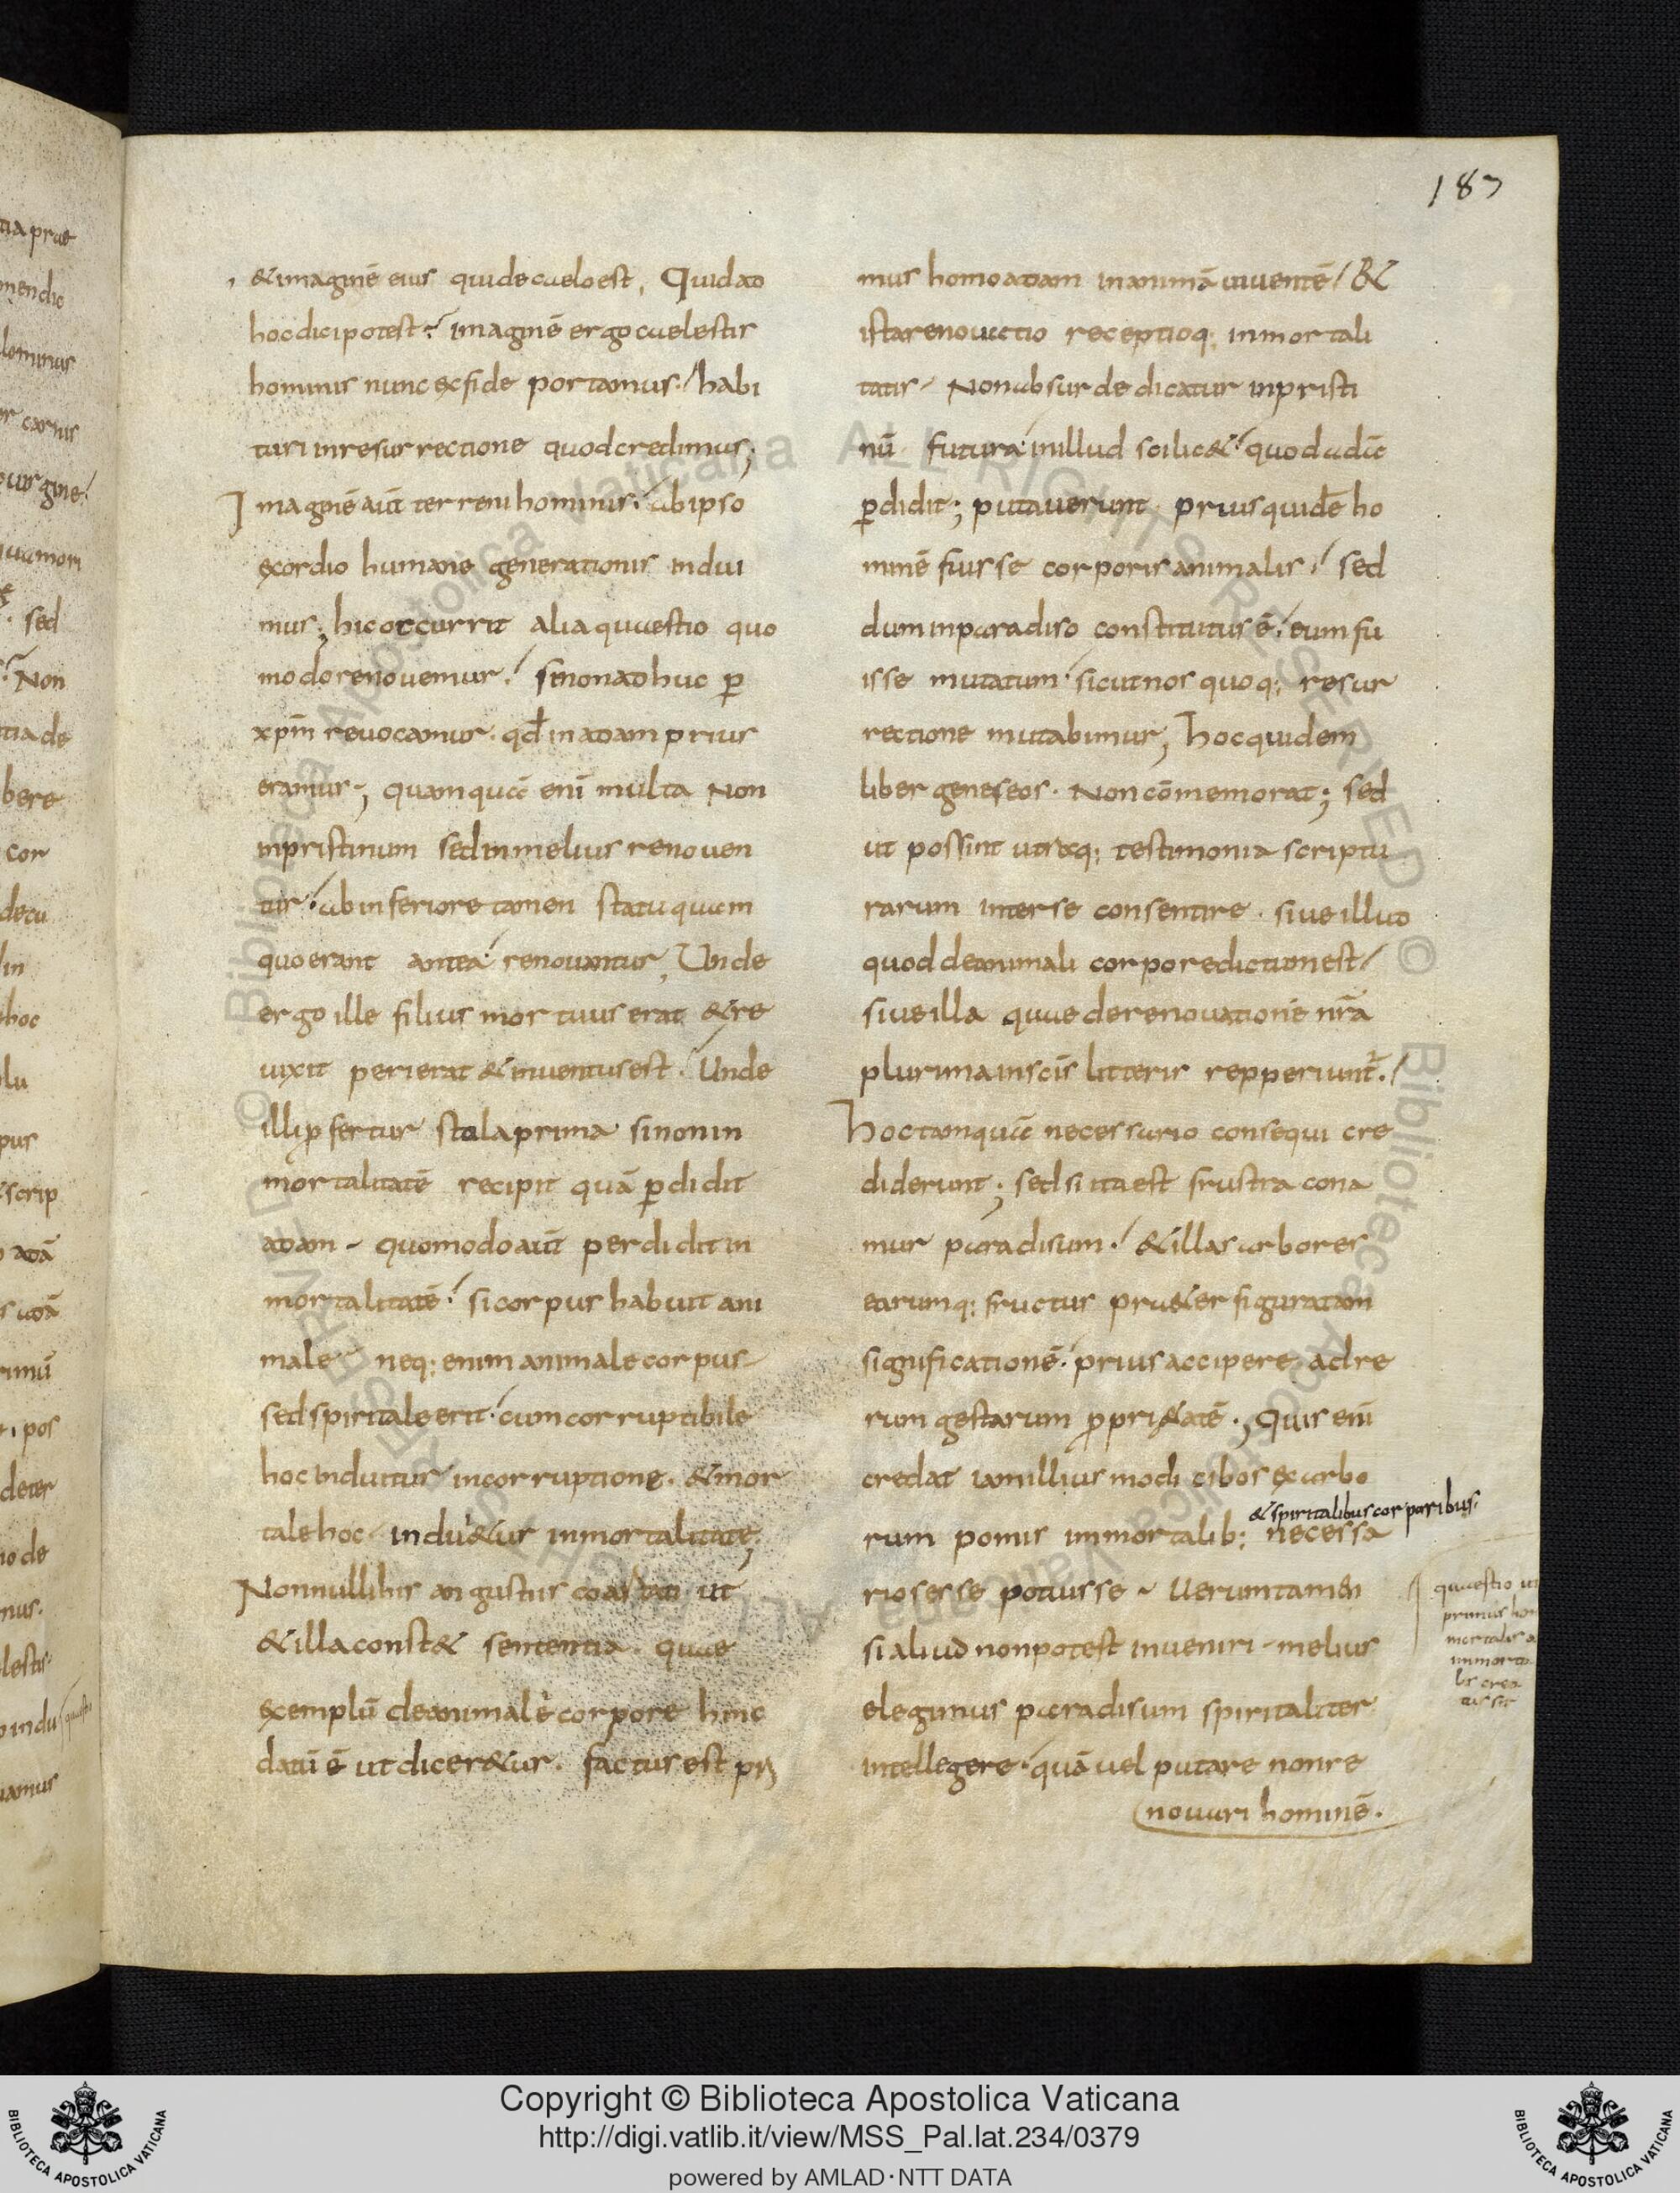 187
& imaginē eius qui de caelo est, Quid ad
hoc dici potest? imaginē ergo caelestis
hominis nunc ex fide portamus. habi
turi in resurrectione quod credimus;
Imaginē aūt terreni hominis. ab ipso
exordio humane generationis indui
mus; hic occurrit alia quaestio quo
modo renovemur. si non adhuc p̄
xp̄m revocamur. qđ in adam prius
eramus; quamquā enī multa non
in pristinum sed in melius renoven
tur. ab inferiore tamen statu quam
quo erant antea. renovantur, Unde
ergo ille filius mortuus erat & re
vixit perierat & inventus est. Unde
illi ꝓfertur stola prima si non in
mortalitatē recipit quā p̄didit
adam - quomodo aūt perdidit in
mortalitatē. si corpus habuit ani
male - neq; enim animale corpus -
sed spiritale erit. cum corruptibile
hoc induitur incorruptione. & mor
tale hoc indu&ur inmortalitate;
Nonnullibus angustiis coartati ut
& illa const& sententia. quae
exemplū de animale corpore hinc
datū ē ut dicer&ur. factus est pri
mus homo adam in animā viventē / &
ista renovatio receptioq; inmortali
tatis - Non absurde dicatur in pristi
nū futura. in illud scilic& quod adā
p̄didit; putaverunt prius quidē ho
minē fuisse corporis animalis. sed
dum in paradiso constitutus ē. eum fu
isse mutatum. sicut nos quoq; resur
rectione mutabimur, hoc quidem
liber geneseos. Non cōmemorat; sed
ut possint utraq; testimonia scriptu
rarum inter se consentire. sive illud
quod de animali corpore dictum est /
sive illa quae de renovatione nr̄a
plurima in scīs litteris repperiunt̄. /
hoc tamquā necessario consequi cre
diderunt; sed si ita est frustra cona
mur paradisum. & illas arbores
earumq; fructus praeter figuratam
significationē. prius accipere ad re
rum gestarum ꝓpri&atē., Quis enī
credat iam illius modi cibos ex arbo
& spiritalibus corporibus.
rum pomis immortalib; necessa
rios esse potuisse - Veruntamen
si aliud non potest inveniri - melius
elegimus paradisum spiritaliter
intellegere. quā vel putare non re
novari hominē.
quaestio ut
primus
mortalis a
immorta
lis crea
tus sit
Copyright © Biblioteca Apostolica Vaticana
http://digi.vatlib.it/view/MSS_Pal.lat.234/0379
powered by AMLAD·NTT DATA